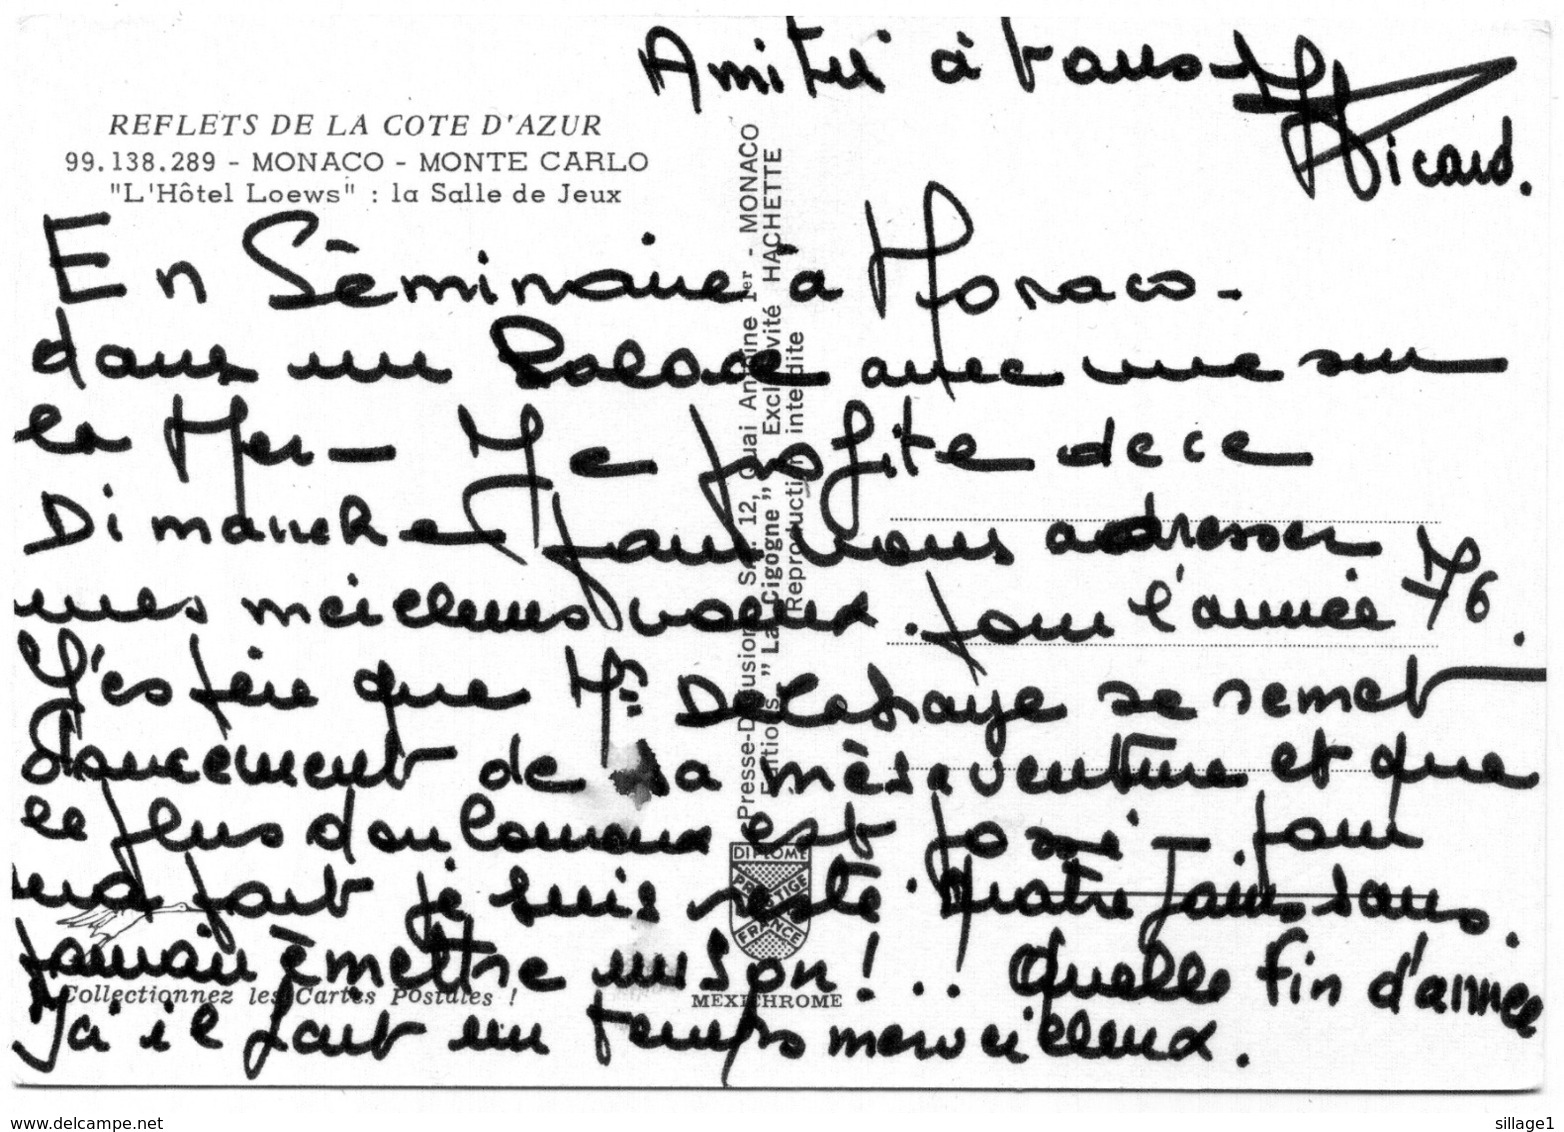 Amitié à tous
Ricard.
REFLETS DE LA COTE D'AZUR
99.138.289 - MONACO - MONTE CARLO
"L'Hôtel Loews" : la Salle de Jeux
En Séminaire à Monaco -
dans un Palace avec vue sur
la Mer - Je profite de ce
Dimanche pour vous adresser
mes meilleurs voeux. pour l'année 76.
J'espère que Mr Delahaye se remet
doucement de sa mésaventure et que
le plus douloureux est passé - pour
ma part je suis resté quatre jours sans
pouvoir émettre un son !... Quelle fin d'année
Ici il fait un temps merveilleux.
Presse-Diffusion S.A. 12, Quai Antoine 1er - MONACO
Editions "La Cigogne" Exclusivité HACHETTE
Reproduction interdite
DIPLOME
PRESTIGE
FRANCE
Collectionnez les Cartes Postales !
MEXICHROME
www.delcampe.net
sillage1